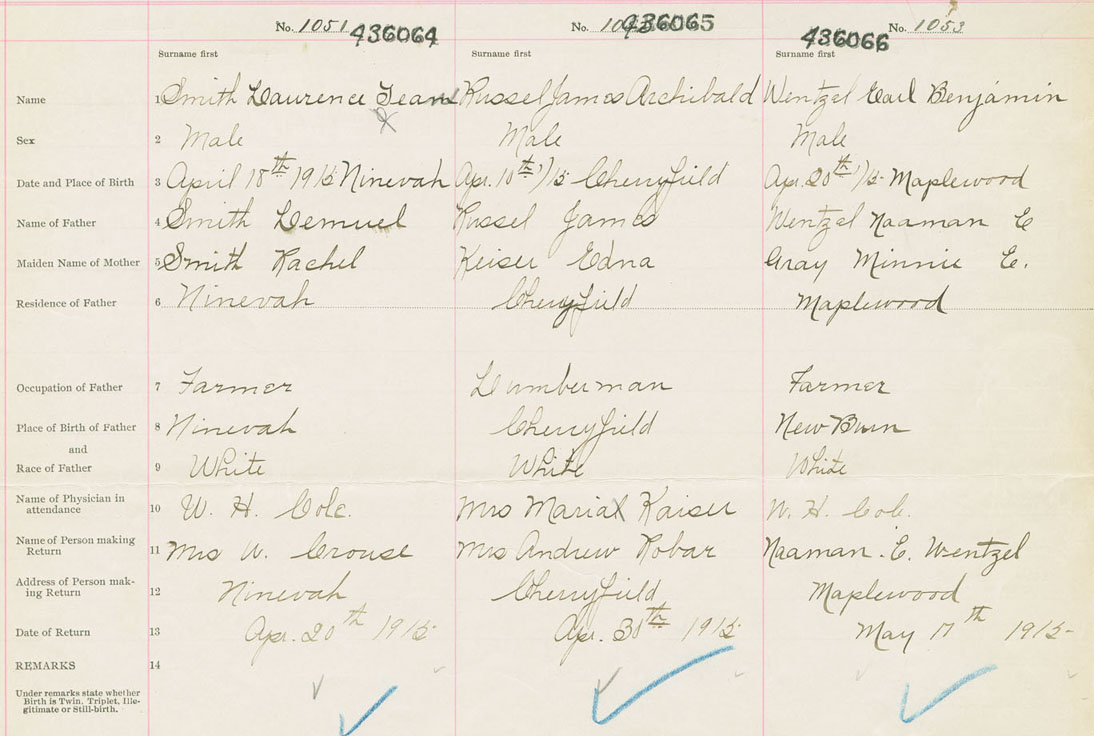 No. 1051 436064 No. 436065 436066 No. 1053
Surname first Surname first Surname first
Name 1 Smith Laurence Russel James Archibald Wentzel Earl Benjamin
Sex 2 Male Male Male
Date and Place of Birth 3 April 18th 1915 Ninevah Apr. 10th '15 Cherryfield Apr. 20th '15 Maplewood
Name of Father 4 Smith Lemuel Russel James Wentzel Naaman E
Maiden Name of Mother 5 Smith Rachel Keiser Edna Gray Minnie E.
Residence of Father 6 Ninevah Cherryfield Maplewood
Occupation of Father 7 Farmer Lumberman Farmer
Place of Birth of Father 8 Ninevah Cherryfield New Burn
and
Race of Father 9 White White White
Name of Physician in
attendance 10 W. H. Cole. Mrs Maria Kaiser W. H. Cole.
Name of Person making
Return 11 Mrs W. Crouse Mrs Andrew Robar Naaman. E. Wentzel
Address of Person mak-
ing Return 12 Ninevah Cherryfield Maplewood
Date of Return 13 Apr. 20th 1915 Apr. 30th 1915 May 17th 1915
REMARKS 14
Under remarks state whether
Birth is Twin. Triplet, Ille-
gitimate or Still-birth.